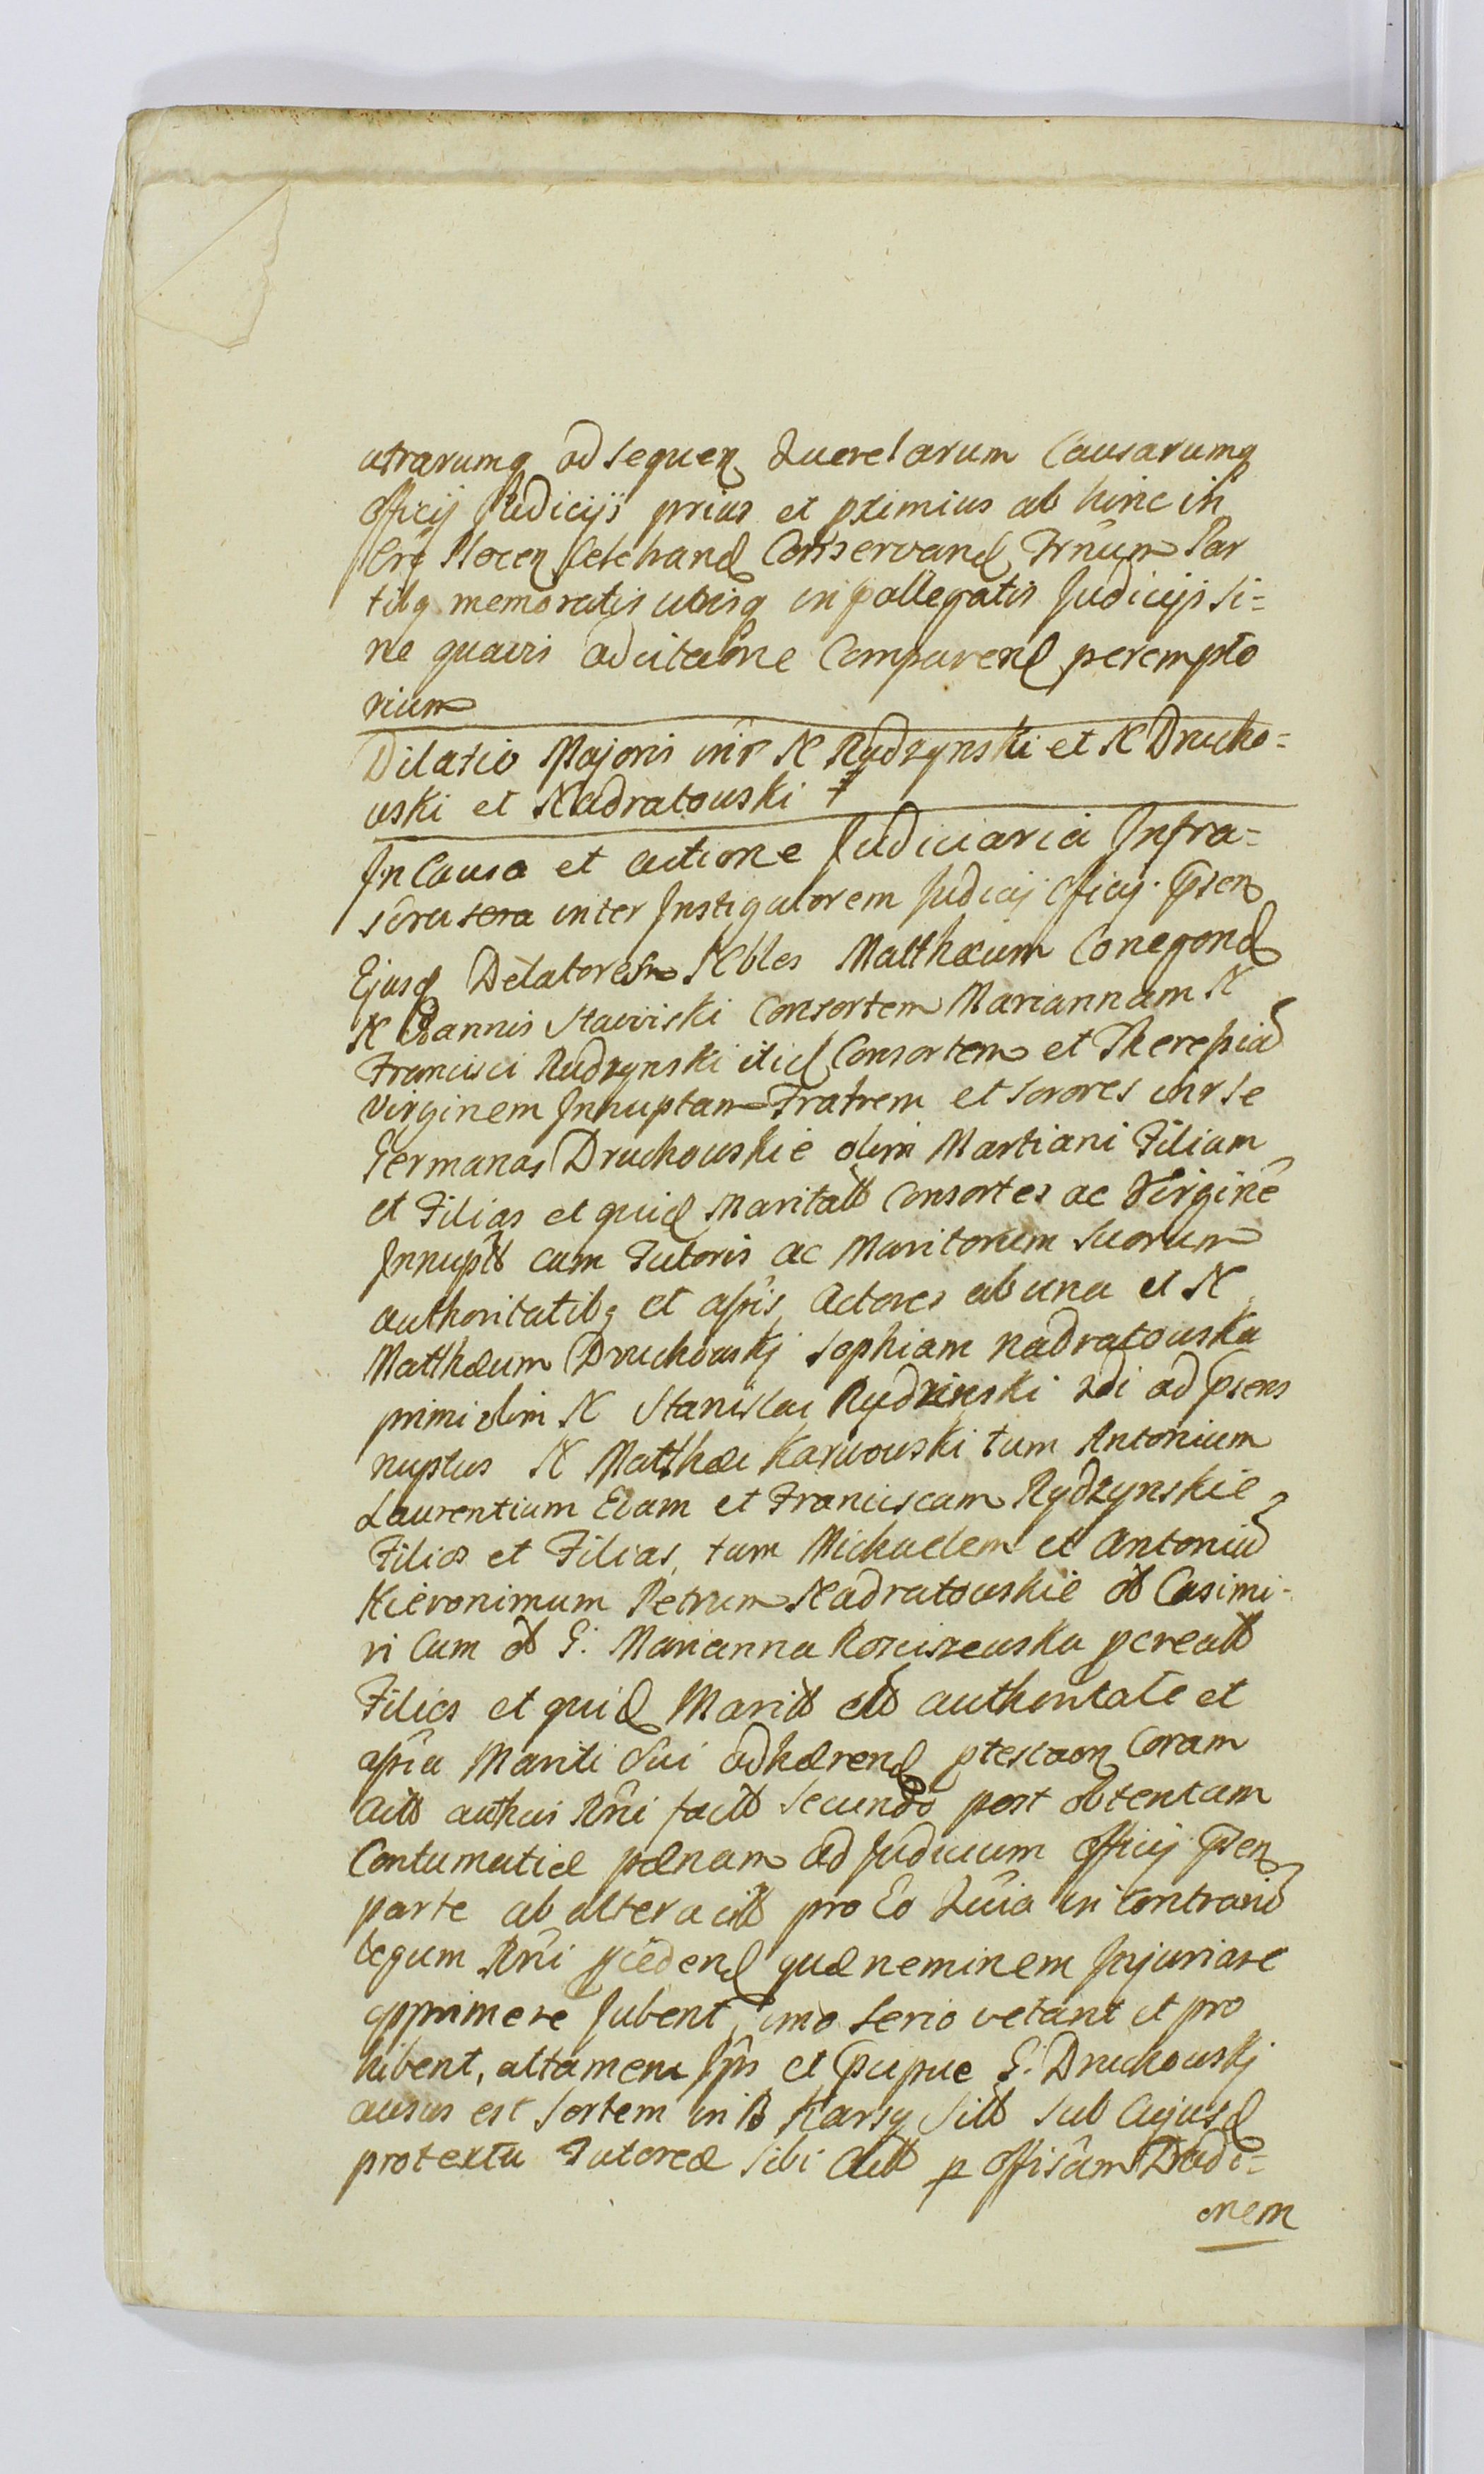 utrarumq ad sequen Querelarum Causarumq
Officij Judicijs prius et primius ab hinc in
Crã Plocen Celebrand Conservand Trnum Par
tibq memoratis utrisq in pallegatis Judicijs si=
ne quavis adcitaône Comparend perempto
rium
Dilatio Majoris intr N Rydzynski et N Drucho=
wski et Nadratowski
In Causa et actione Judiciaria Infra=
scru inter Instigatorem Judicij Officij Prsen
Ejusq Delatores Nbles Matthæum Conegond
N Joannis Stawiski Consortem Mariannam N
Francisci Rudzynski itid Consortem et Theresiã
Virginem Innuptam Fratrem et Sorores intr se
Germanas Druchowskie olim Martiani Filium
et Filias et quid Maritatt Consortes ac Virginẽ
Innuptt cum Tutoris ac Maritorum Suorum
authoritatibq et assiis Actores ab una et N
Matthæum Druchowskj Sophiam Nadratowska
primi olim N Stanislai Rydzinski 2di ad prsens
nuptus N Matthæi Karwowski tum Antonium
Laurentium Evam et Franciscam Rydzynskie
Filios et Filias, tum Michaelem et Antoniũ
Hieronimum Petrum Nadratowskie ol Casimi-
ri Cum ol G. Marianna Rosciszewska pcreatt
Filios et quid Maritt ett authoritate et
assia Mariti Sui adhærend ptestaon Coram
Actt authcis Rni factt Secundo post obtentam
Contumatiæ pænam ad Judicium Officij Prsen
parte ab altera citt pro Eo Quia in Contrariũ
legum Rni pcedend quæ neminem Injuriare
opprimere Jubent, imo Serio vetant et pro
hibent, attamen Ips et G. Druchowskj
ausus est Sortem in B Karsy Sitt Sub Cujusd
protextu Tutoreæ Sibi Datt p Offisam Dado=
onem